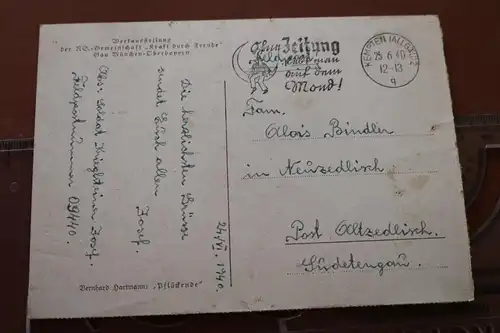 Werkausstellung
der NS.-Gemeinschaft „Kraft durch Freude“
Gau München-Oberbayern
Ohne Zeitung
lebt man
auf dem
Mond!
KEMPTEN (ALLGÄU) 2
25.6.40
12-13
q
Feldpost
24. VI. 1940.
Die herzlichsten Grüsse
sendet Euch allen
Josef.
Abs: Soldat Krieglsteiner Josef.
Feldpostnummer 09440.
Fam.
Alois Bindler
in Neuzedlisch
Post Altzedlisch.
Sudetengau.
Bernhard Hartmann: „Pflückende“